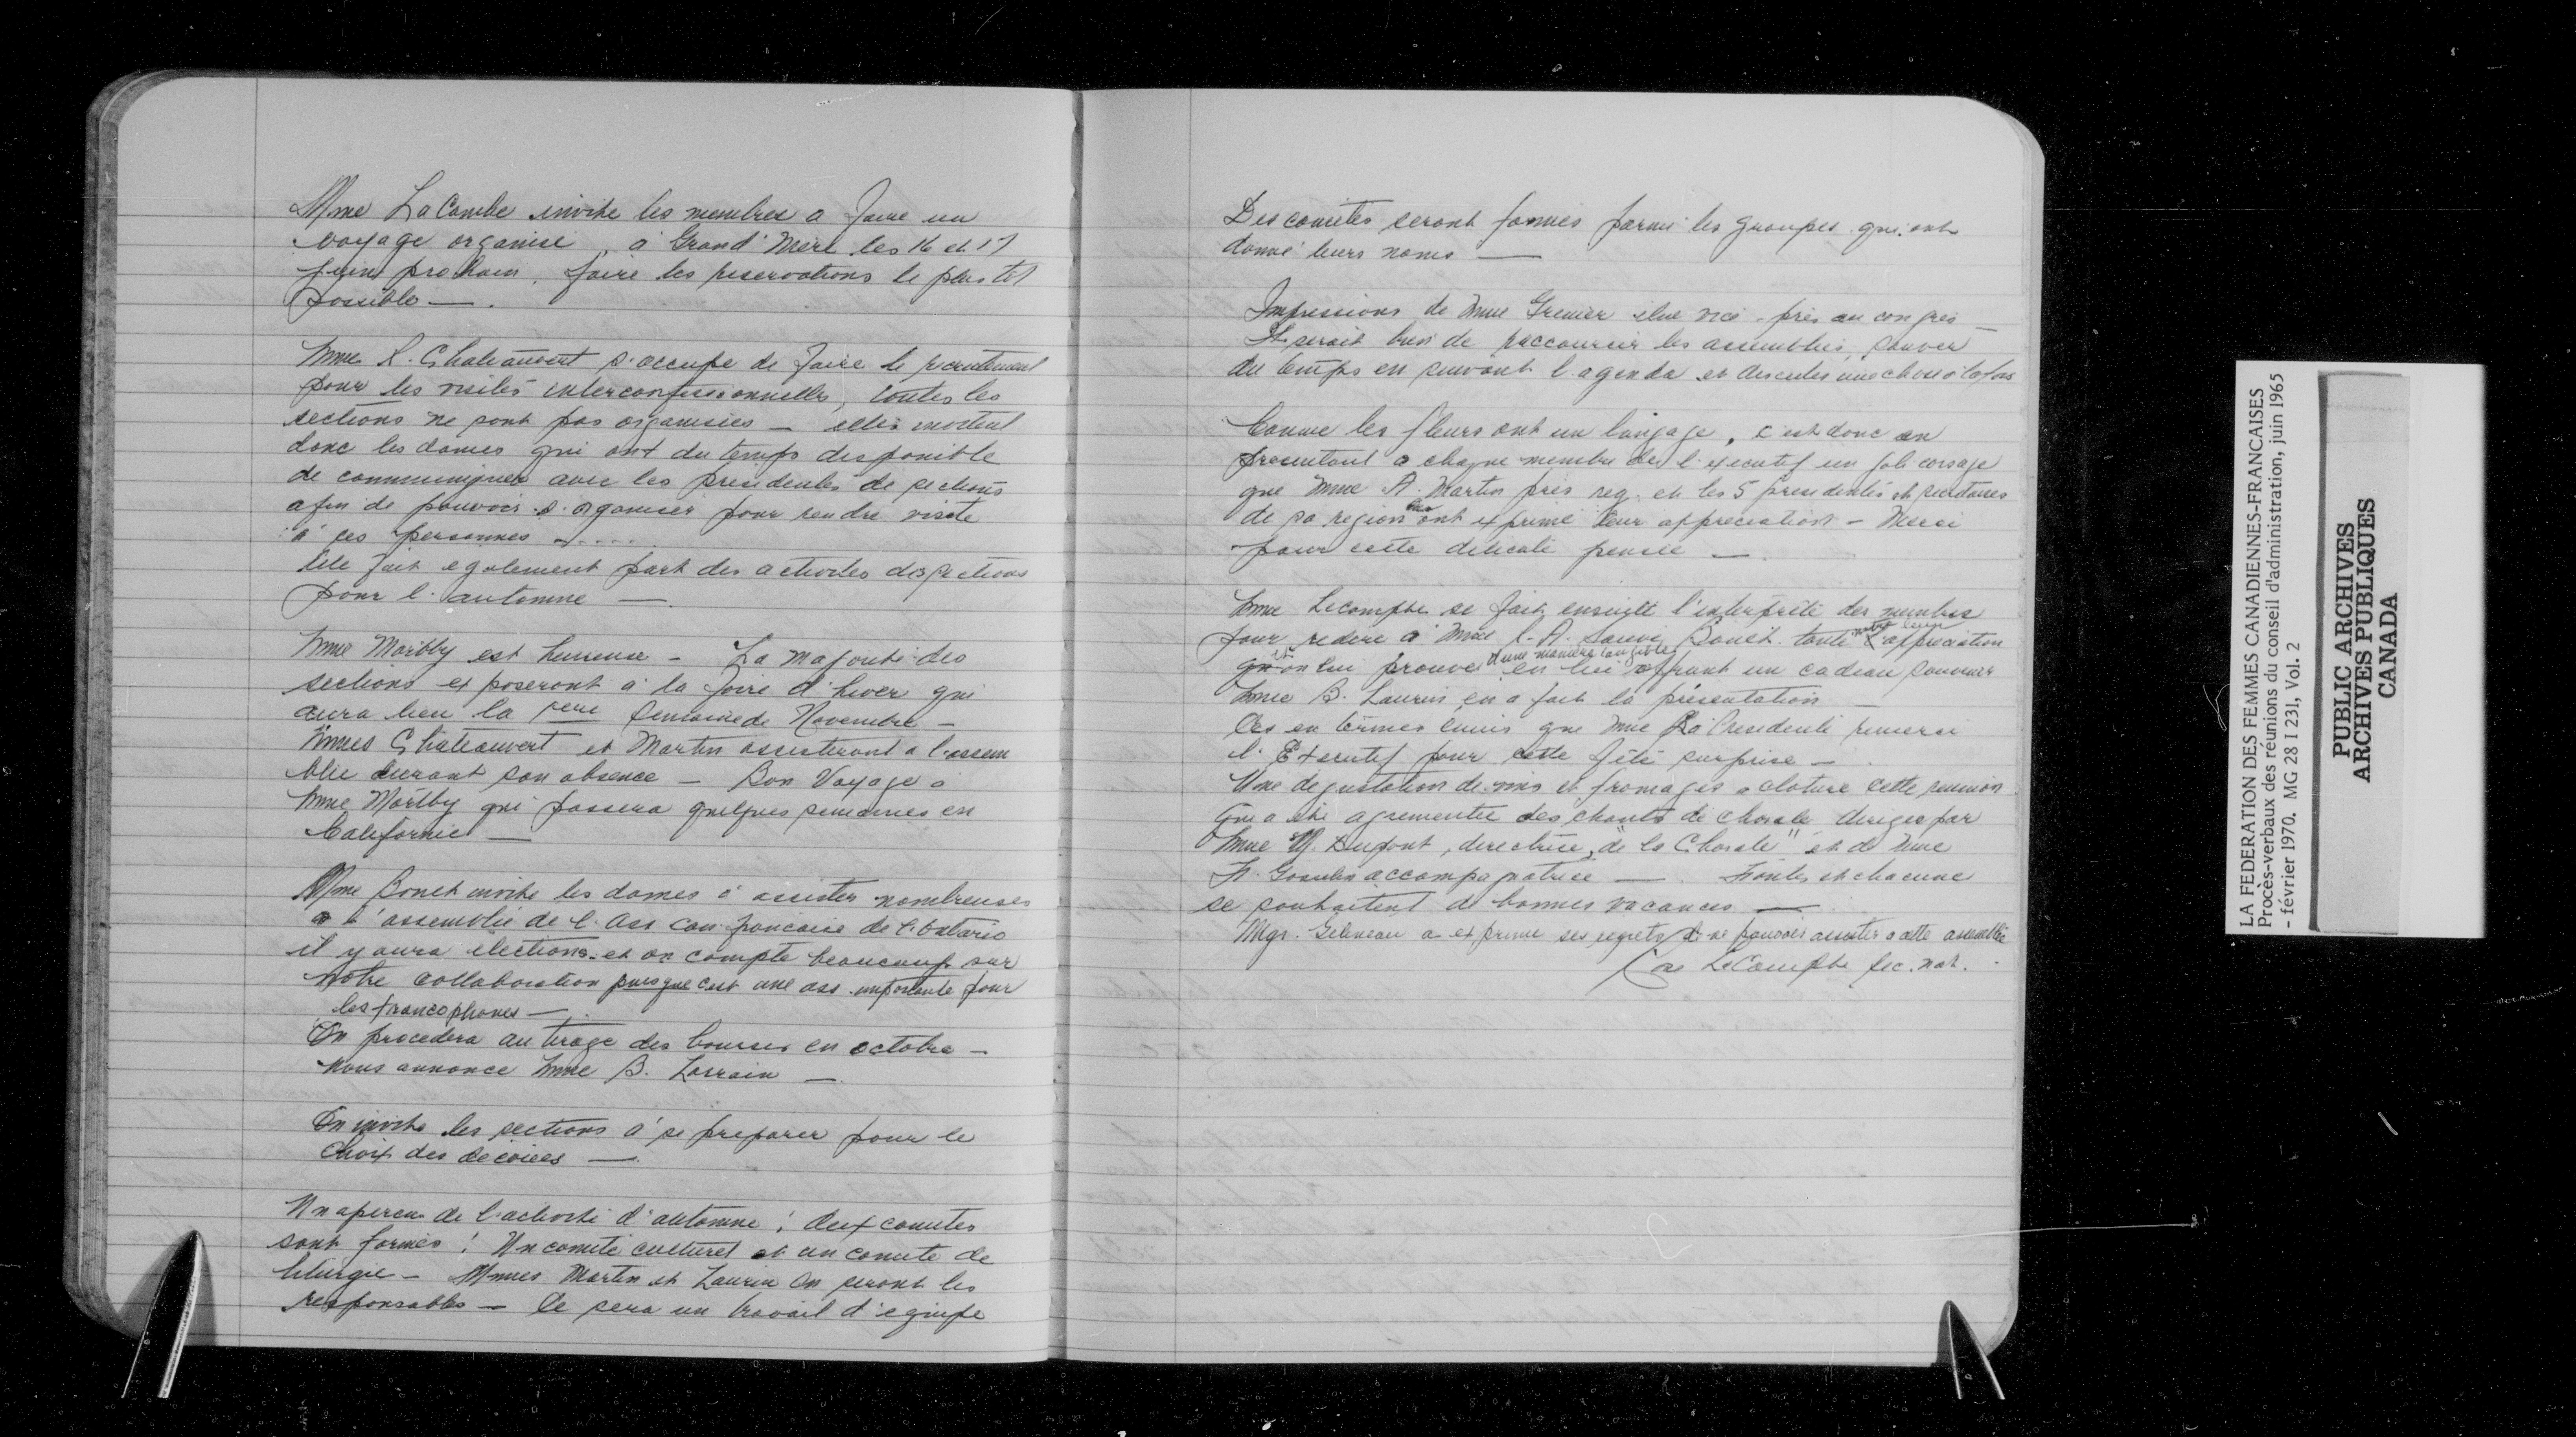 Mme LaCombe invite les membres a faire un
voyage organisé, à Grand'Mere les 16 et 17
juin prochain, faire les reservations le plus tôt
possible —.
Mme R. Chateauvert s'occupe de faire le recrutement
pour les visites interconfessionnelles, toutes les
sections ne sont pas organisées — elles invitent
donc les dames qui ont du temps disponible
de communiquer avec les presidentes de sections
afin de pouvoir s'organiser pour rendre visite
à ces personnes - ....
Elle fait egalement part des activites des sections
pour l'automne —.
Mme Maltby est heureuse - La majorité des
sections exposeront à la foire d'hiver qui
aura lieu la 1ere semaine de Novembre -
Mmes Chateauvert et Martin assisteront a l'assem
blée durant son absence - Bon Voyage à
Mme Maltby qui passera quelques semaines en
Californie —
Mme Bonet invite les dames à assister nombreuses
a l'assemblée de l'Ass can francaise de l'Ontario
il y aura elections - et on compte beaucoup sur
notre collaboration puisque c'est une ass importante pour
les francophones —.
On procedera au tirage des bourses en octobre -
nous annonce Mme B. Lorrain —.
On invite les sections à se preparer pour le
choix des decorées —.
Un apercu de l'activité d'automne : deux comites
sont formés : Un comité culturel et un comite de
liturgie - Mmes Martin et Laurin en seront les
responsables — Ce sera un travail d'equipe
Des comites seront formés parmi les groupes qui ont
donné leurs noms —
Impressions de Mme Grenier elue vice-prés au congrès —
Il serait bon de raccourcir les assemblées, sauver
du temps en suivant l'agenda et discuter une chose à la fois
Comme les fleurs ont un langage, c'est donc en
presentant a chaque membre de l'executif un joli corsage
que Mme A. Martin prés reg. et les 5 presidentes et secretaires
de sa region ont exprimé leur appreciation - Merci
pour cette delicate pensée —.
Mme Lecompte se fait ensuite l'interprète des membres
pour redire à Mme L. A. Sauvé Bonet toute notre appreciation
et on lui prouve d'une maniere tangible en lui offrant un cadeau souvenir
Mme B. Laurin en a fait la présentation —
C'es en termes emus que Mme La Presidente remercie
l'Executif pour cette fête surprise —.
Une degustation de vins et fromages a cloture cette reunion
qui a été agrementée des chants de chorale diriges par
Mme M. Dupont, directrice, "de la Chorale" et de Mme
F. Gosselin accompagnatrice —. Toutes et chacune
se souhaitent de bonnes vacances —
Mgr. Gelineau a exprimé ses regrets de ne pouvoir assister a cette assemblée
LeCompte sec. nat.
LA FEDERATION DES FEMMES CANADIENNES-FRANCAISES
Procès-verbaux des réunions du conseil d'administration, juin 1965
- février 1970. MG 28 I 231, Vol. 2
PUBLIC ARCHIVES
ARCHIVES PUBLIQUES
CANADA